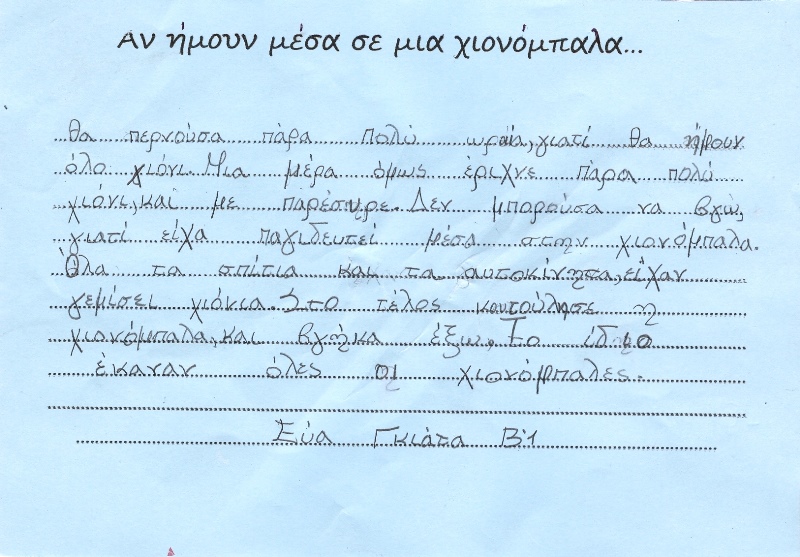 Αν ήμουν μέσα σε μια χιονόμπαλα...
θα περνούσα πάρα πολύ ωραία, γιατί θα ήμουν
όλο χιόνι. Μια μέρα όμως έριχνε πάρα πολύ
χιόνι, και με παρέσυρε. Δεν μπορούσα να βγω,
γιατί είχα παγιδευτεί μέσα στην χιονόμπαλα.
Όλα τα σπίτια και τα αυτοκίνητα, είχαν
γεμίσει χιόνια. Στο τέλος κουτούλησε η
χιονόμπαλα, και βγήκα έξω, Το ίδιο
έκαναν όλες οι χιονόμπαλες.
Εύα Γκιάτα Β'1